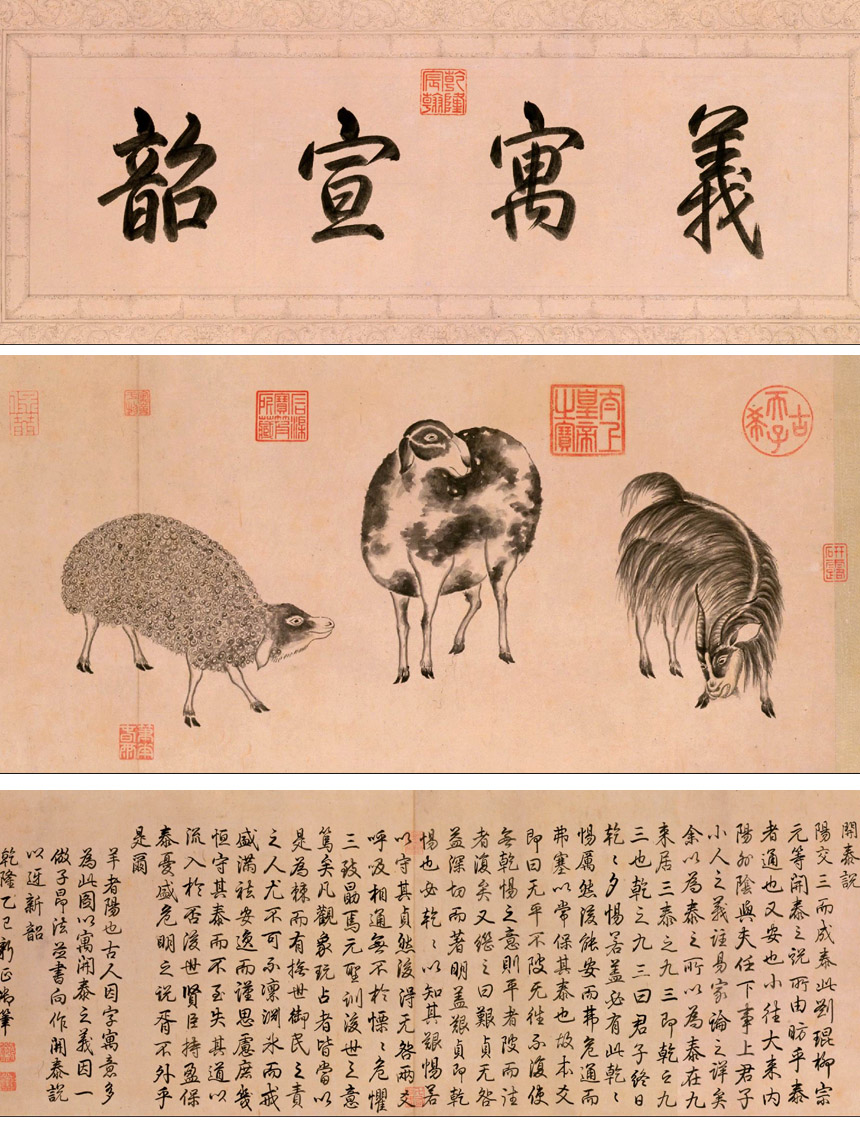 乾隆宸翰
義寓宣韶
古希天子
太上皇帝之寶
石渠寶笈所藏
開泰說
陽交三而成泰此劉琨柳宗
元等開泰之說所由昉乎泰
者通也又安也小往大来内
陽外陰與夫任下事上君子
小人之義註易家論之詳矣
余以為泰之所以為泰在九
来居三泰之九三即乾之九
三也乾之九三曰君子終日
乾〻夕惕若盖必有此乾〻
惕厲然後能安而弗危通而
弗塞以常保其泰也故本爻
即曰无平不陂无往不復使
無乾惕之意則平者陂而往
者復矣又繼之曰艱貞无咎
益深切而著明盖艱貞即乾
惕也必乾〻以知其艱惕若
以守其貞然後得无咎兩爻
呼吸相通無不於慄〻危懼
三致勗焉元聖訓後世之意
篤矣凡觀象玩占者皆當以
是為棘而有撫世御民之責
之人尤不可不凜淵冰而戒
盛滿袪安逸而謹思慮庶幾
恒守其泰而不至失其道以
流入於否後世賢臣持盈保
泰憂盛危明之説胥不外乎
是爾
羊者陽也古人因字寓意多
為此圖以寓開泰之義因一
倣子昂法並書向作開泰說
以迓新韶
乾隆乙巳新正御筆